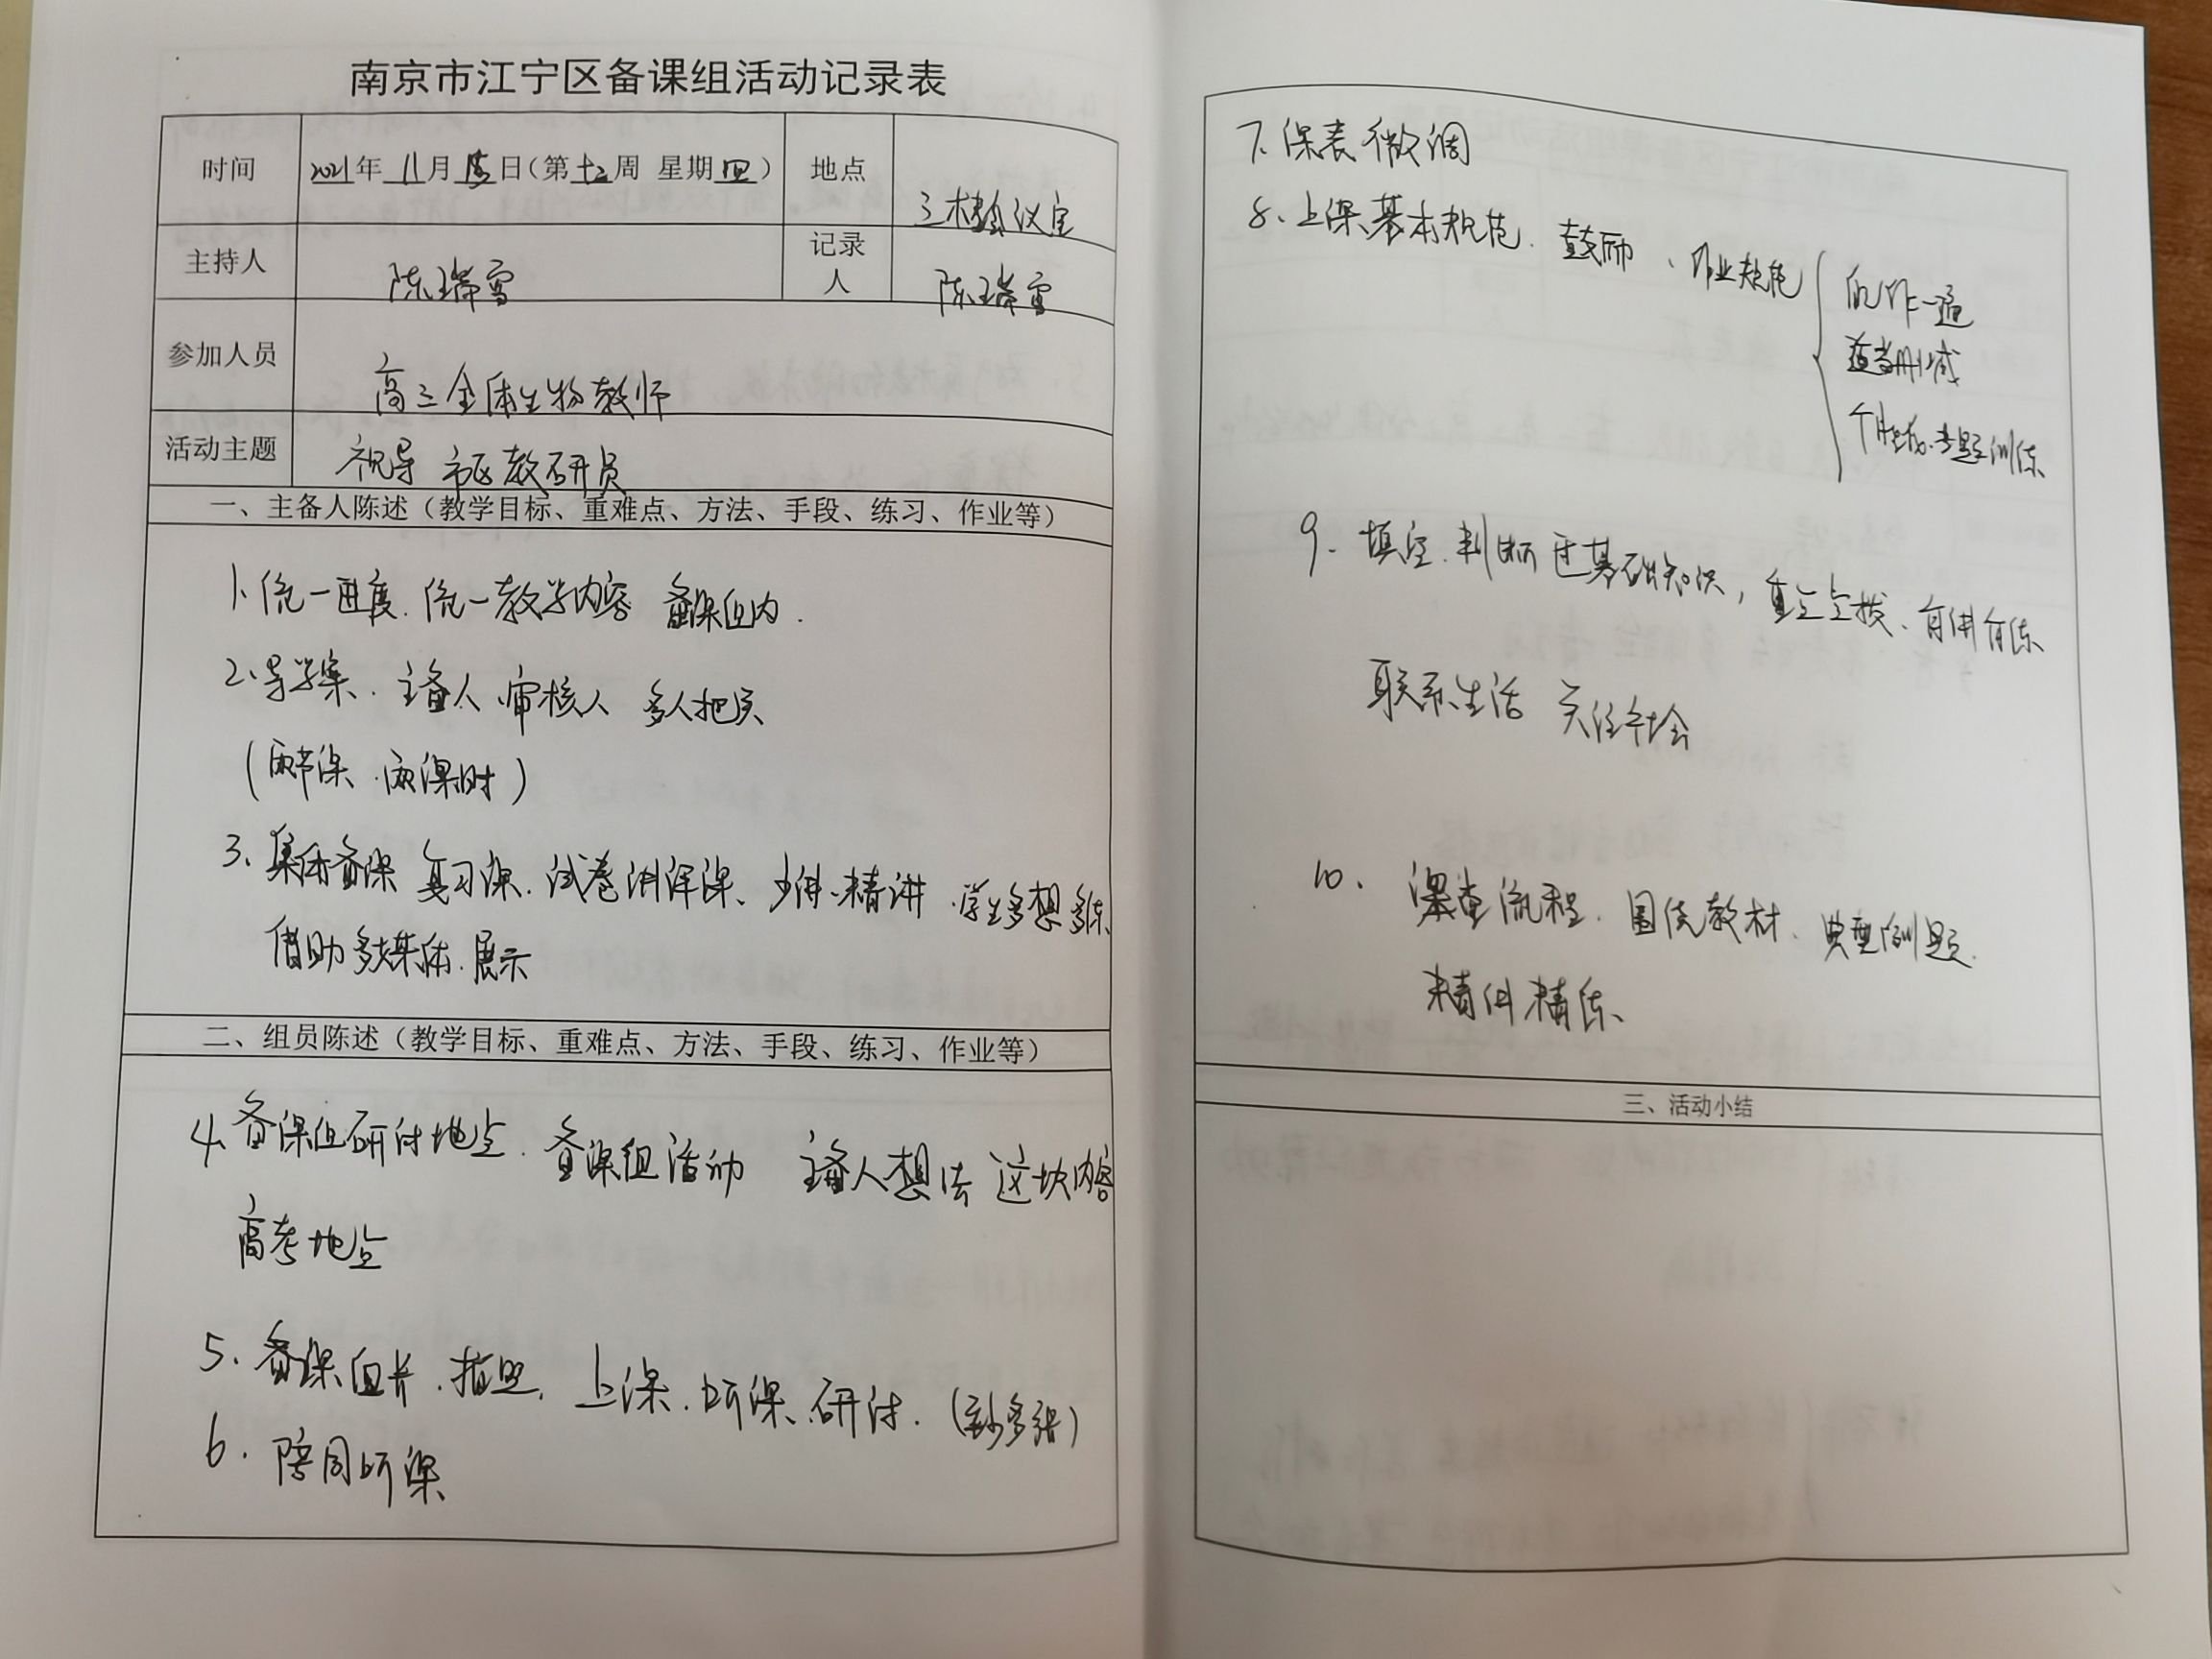 南京市江宁区备课组活动记录表
时间 2021年 11月 日(第十二周 星期四) 地点 三楼会议室
主持人 陈瑞雪 记录人 陈瑞雪
参加人员 高三全体生物教师
活动主题 视导 市区教研员
一、主备人陈述(教学目标、重难点、方法、手段、练习、作业等)
1、统一进度、统一教学内容 备课组内.
2、导学案、主备人 审核人 多人把关
(两节课、两课时)
3、集体备课 复习课、试卷讲评课、少讲、精讲、学生多想多练
借助多媒体、展示
二、组员陈述(教学目标、重难点、方法、手段、练习、作业等)
4、备课组研讨地点、备课组活动 主备人想法 这块内容
高考地位
5、备课组长、指点、上课、听课、研讨.
6、陪同听课
7、课表微调
8、上课基本规范、鼓励、作业规范
先作一遍
适当删减
个性化、专题训练
9、填空、判断 过基础知识,重点点拨、有讲有练
联系生活 关注社会
10、课堂流程、围绕教材、典型例题
精讲精练
三、活动小结